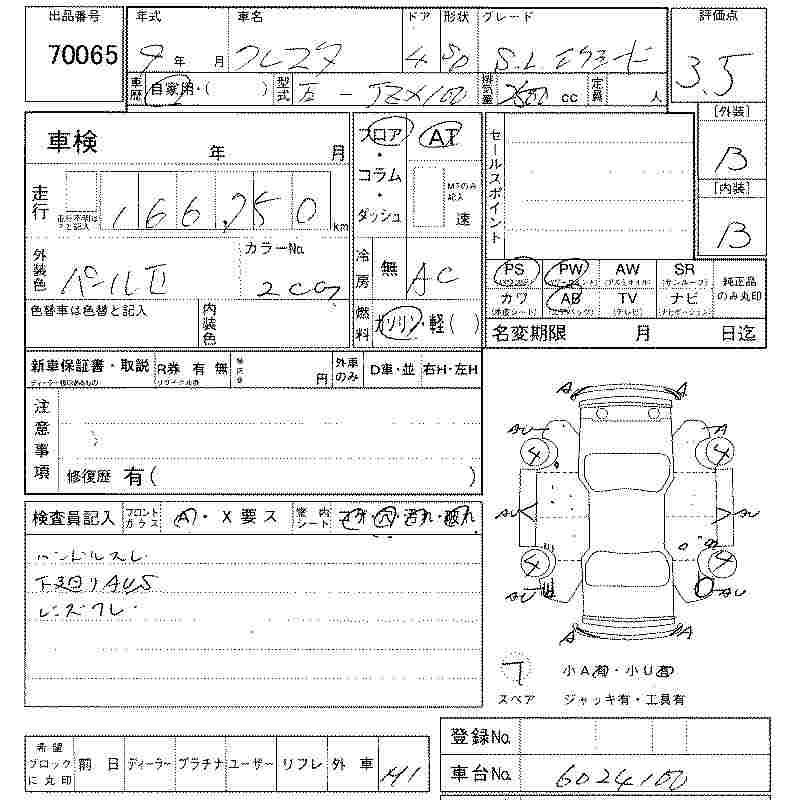 出品番号 年式 車名 ドア 形状 グレード 評価点
70065 9年 月 クレスタ 4 SD S.L. 3.5
車歴 自家用・( ) 型式 - JZX100 排気量 2500 cc 定員 人
[外装]
B
[内装]
B
車検 年 月
フロア・コラム・ダッシュ AT MTのみ記入 速
セールスポイント
走行 166,750 km
外装色 パールII カラーNo. 2C07
冷房 無 AC
燃料 ガソリン・軽( )
色替車は色替と記入 内装色
PS PW AW SR 純正品のみ丸印
カワ AB TV ナビ
(本皮シート) (エアバッグ) (テレビ) (ナビゲーション)
名変期限 月 日迄
新車保証書・取説 R券 有 無 円 外車のみ D車・並 右H・左H
注意事項
修復歴 有( )
検査員記入 フロントガラス A・X要ス 室内シート コゲ・穴・汚れ・破れ
ハンドルスレ
下廻りAUS
A A
AU A
4 4
AU AU
4 4
AU AU
A A
小A有・小U有
スペア ジャッキ有・工具有
希望ブロックに丸印 前日 ディーラー プラチナ ユーザー リフレ 外車
登録No.
車台No. 6024100